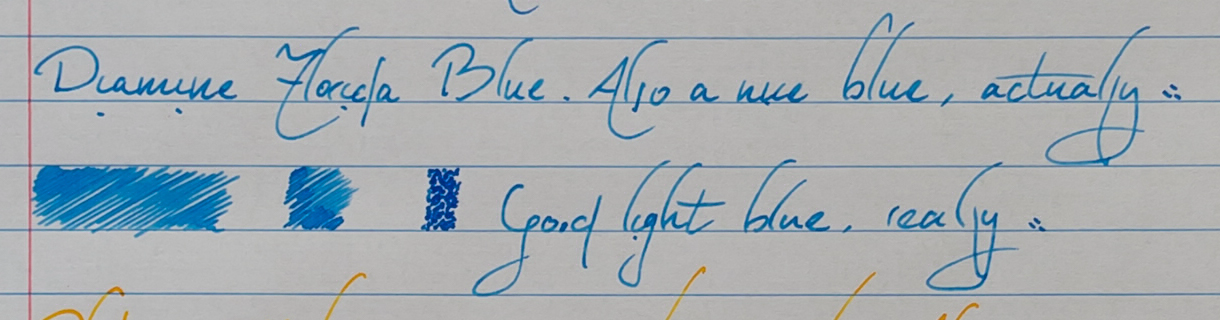 Diamine Florida Blue. Also a nice blue, actually :
Good light blue, really :